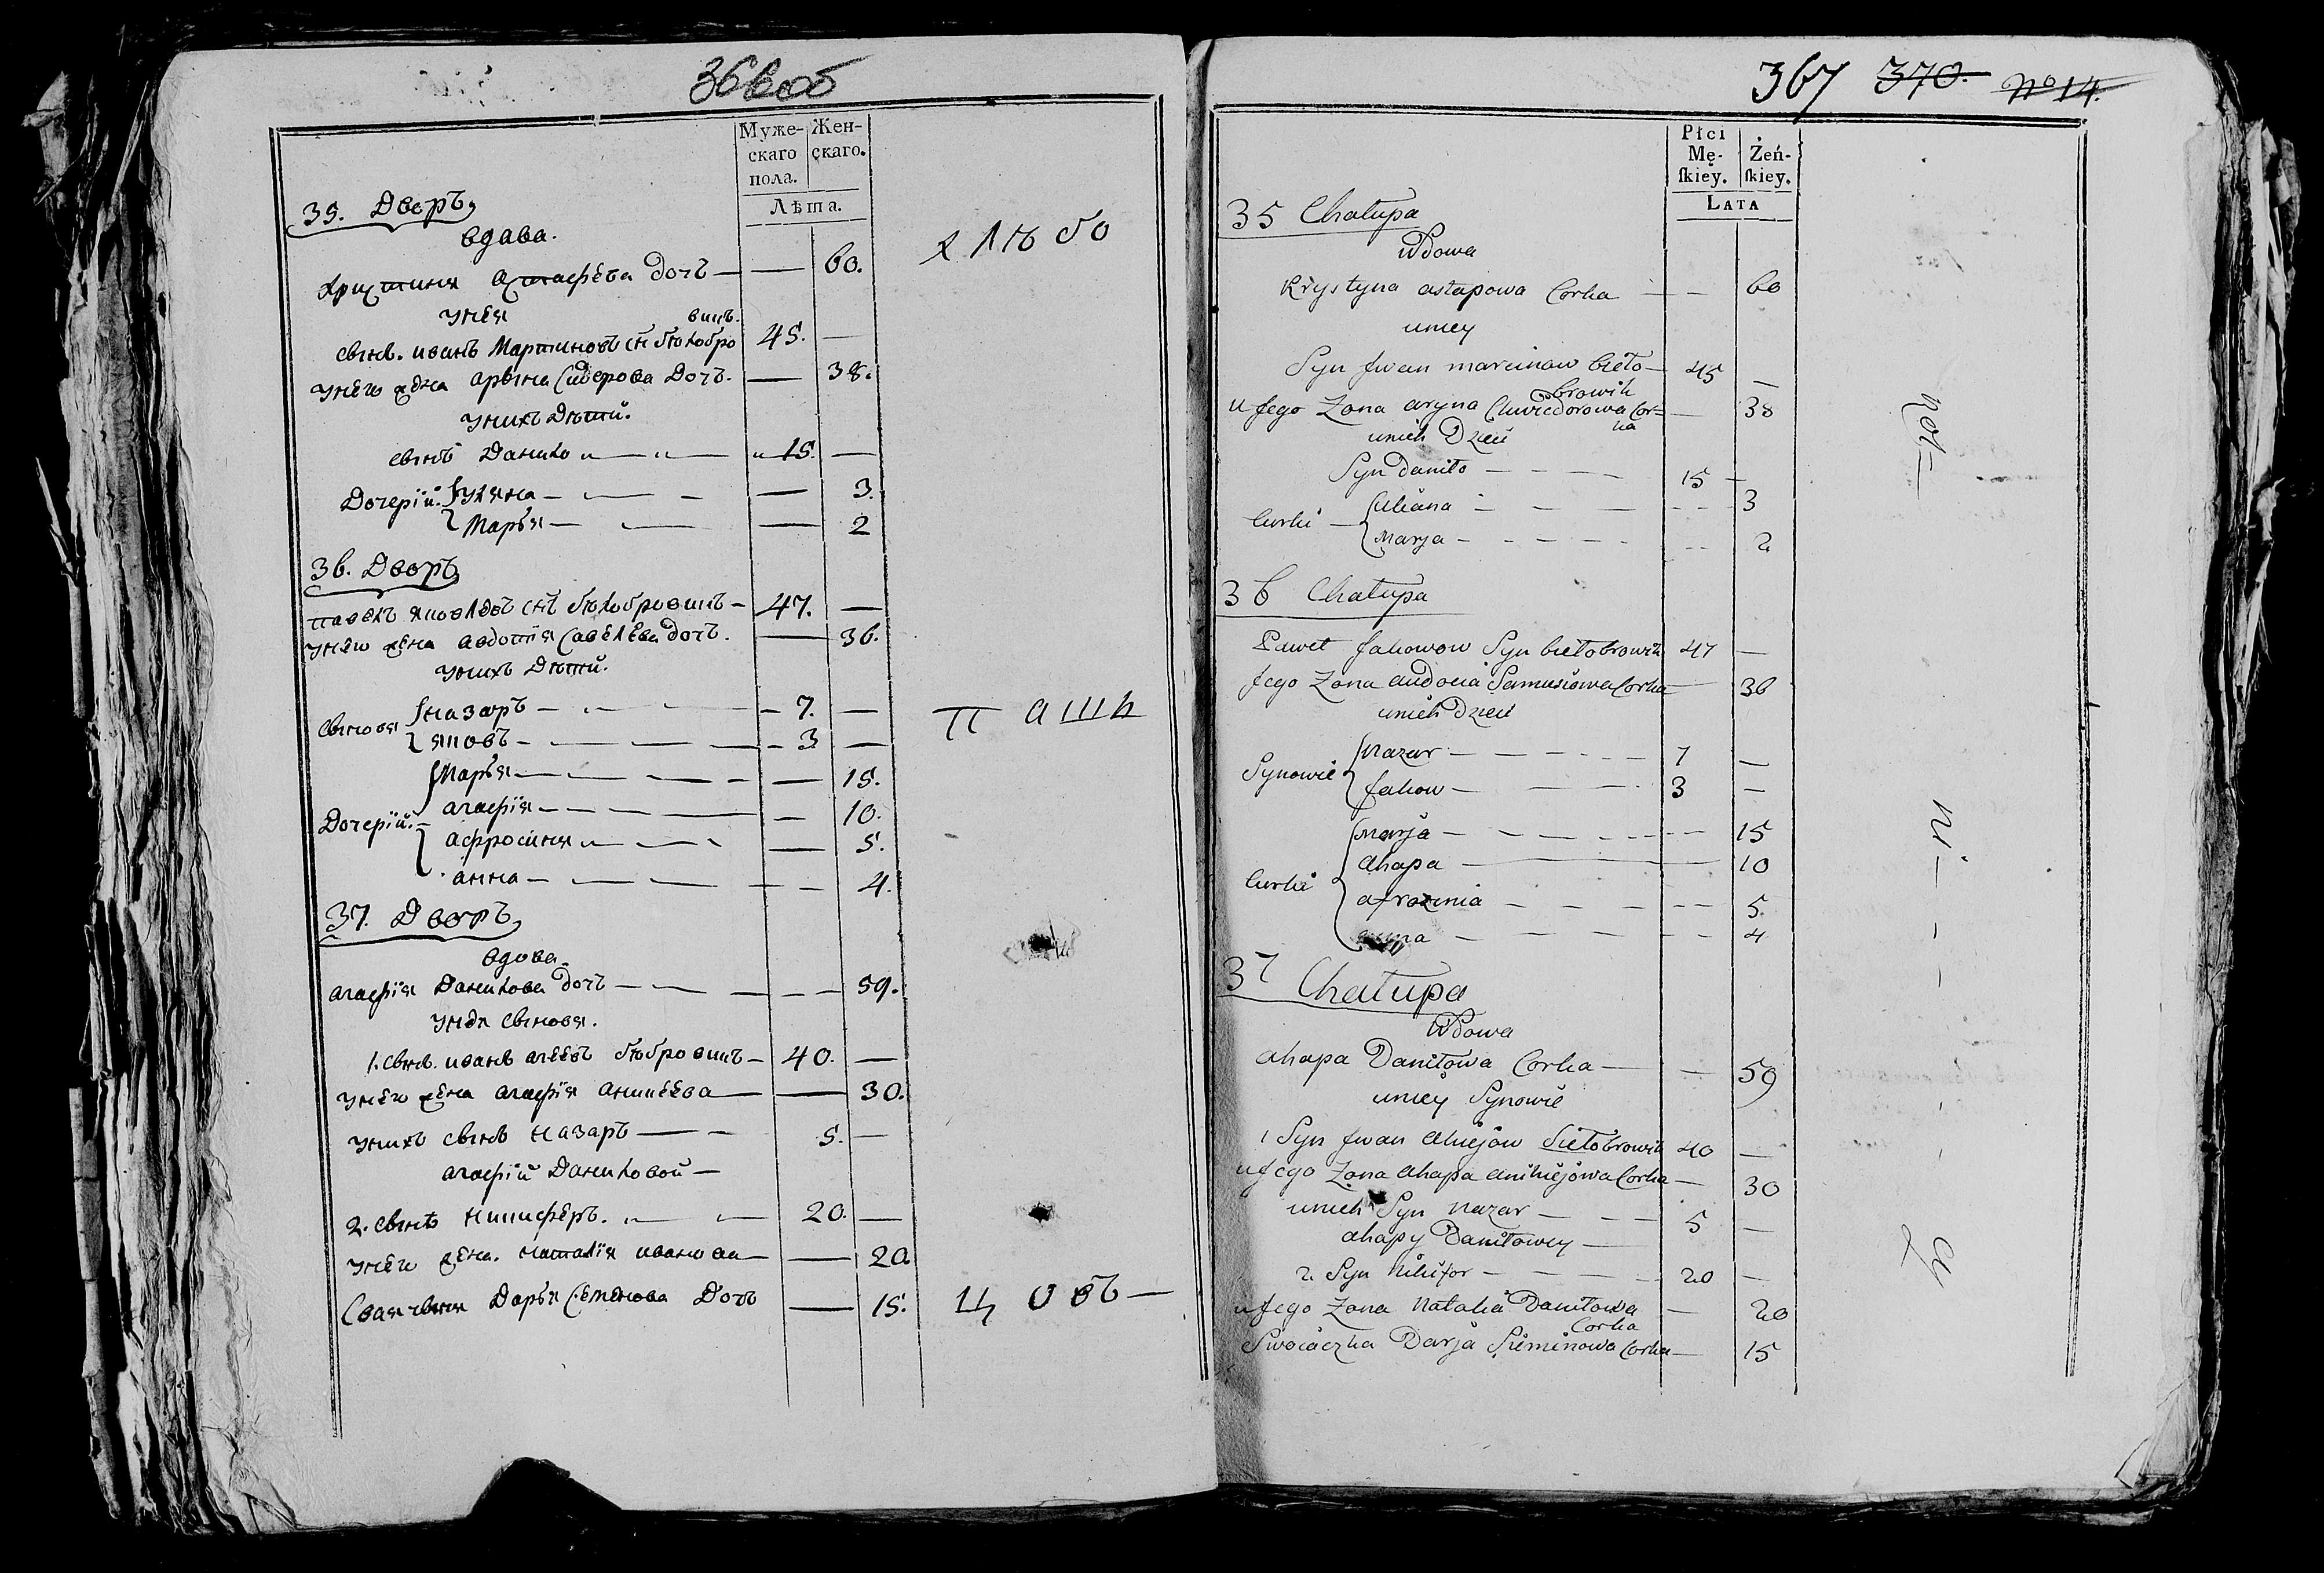 366об
Муже-
скаго
пола.
Жен-
скаго.
Лѣта.
35. Дворъ,
вдава.
Христиня Астафѣва дочъ — — 60.
унея
сынъ. иванъ Мартиновъ сн бѣлобро
вичъ.
45. —
унего жена арына Сидорова Дочъ. — 38.
унихъ Дѣтй.
сынъ Данило „ — „ — „ 15. —
Дочерїй. { уляна — — — — 3.
Марья — — — 2
36. Дворъ
павелъ яковлевъ снъ бѣлобровичъ — 47. —
унего жена авдотїя Савелева дочъ. — 36.
унихъ Дѣтй.
Сыновя { назаръ — — — 7. —
яковъ — — — — 3 —
Дочерїй. { Марья — — — — — 15.
агафїя — — — — — 10.
афросиня — — — — 5.
анна — — — — — 4.
37. Дворъ,
вдова.
агафїя Данилова дочъ — — — — — 59.
унея сыновя.
1. сынъ. иванъ агеевъ бѣлбровичъ — 40. —
унего жена агафїя аникеева — — 30.
унихъ сынъ назаръ — — 5. —
агафїй Даниловой —
2. сынъ никифѣръ. — — 20. —
унего жена. наталїя иванова — — 20.
Своячыня Дарья Семенова Дочъ — 15.
хлѣбо
пашц
цовъ —
367 370. No 14.
Płci
Mę-
ſkiey.
Żeń-
ſkiey.
LATA
35 Chałupa
Wdowa
Krystyna astapowa Corka — — 60
uniey
Syn Jwan marcinow bieło- 45 —
browik
u Jego Zona aryna Chwiedorowa Cor= — 38
ka
unich Dzieci
Syn Daniło — — — — 15 —
Curki — { Uliana — — — - - - 3
Marja — - - - - - - 2
36 Chałupa
Paweł Jakowow Syn biełobrowik 47 —
Jego Zona audocia Samusiowa Corka — 36
unich Dzieci
Synowie { Nazar — — - - - — 7 —
Jakow — — — - 3 —
Curki { Marja — - — - - - - - 15
ahapa — — — 10
afrozinia — — — - - 5.
anna — — — — - - 4
37 Chałupa
Wdowa
ahapa Daniłowa Corka — — 59
uniey Synowie
1 Syn Jwan ahiejow biełobrowik 40 —
uJego Zona ahapa anikiejowa Corka — 30
unich Syn Nazar — — — 5 —
ahapy Daniłowey —
2. Syn Nikifor — — — - 20 —
u Jego Zona Natalia Daniłowa — 20
Corka
Swociaczka Darja Sieminowa Corka — 15
Rol=
ni —
cy